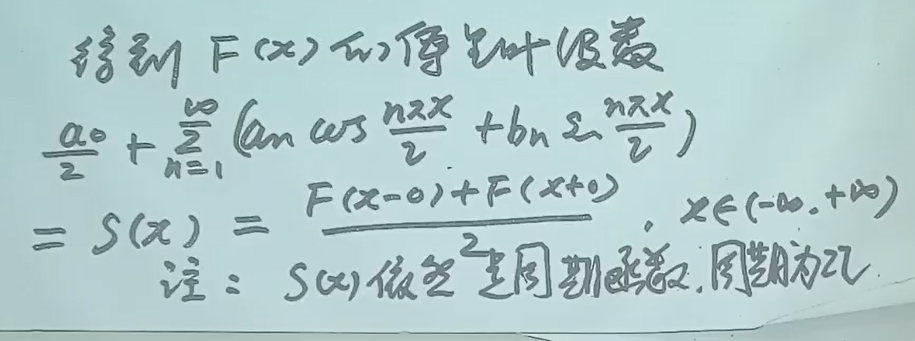 得到 F(x) 的傅里叶级数
a₀/2 + ∑_{n=1}^{∞} (aₙ cos nπx/l + bₙ sin nπx/l)
= S(x) = (F(x-0)+F(x+0))/2 , x∈(-∞,+∞)
注: S(x) 依然是周期函数,周期为2l.